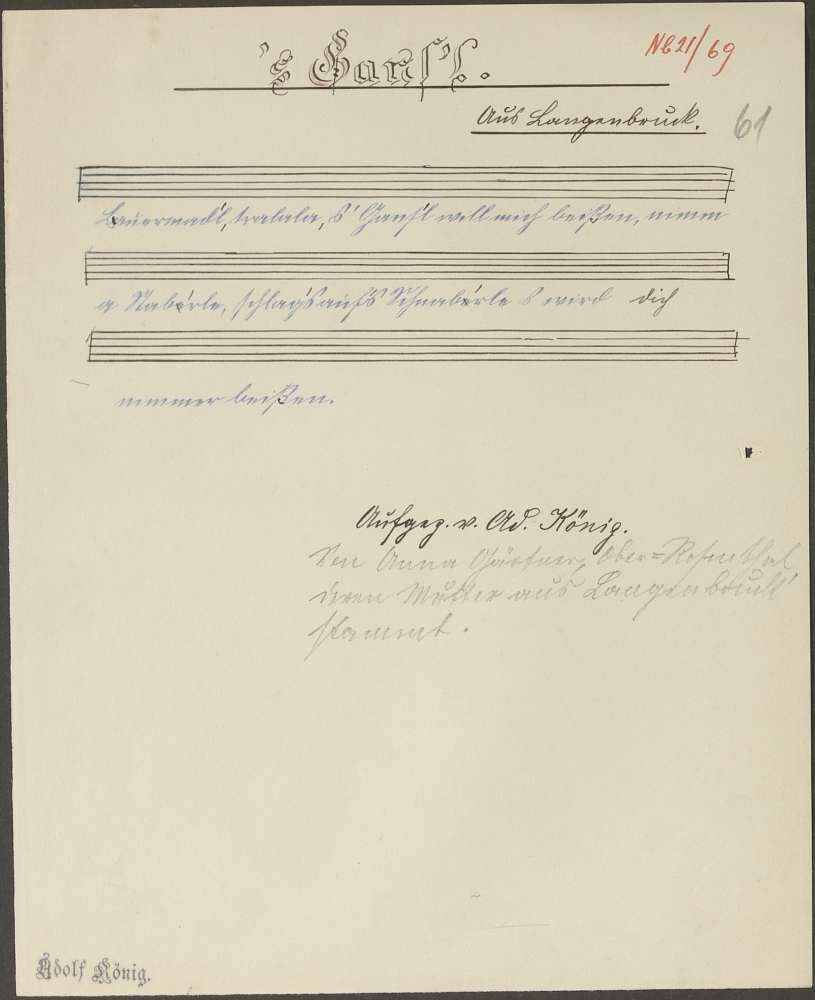 's Gans'l.
NB21/69
Aus Langenbruck.
61
Bauermadl, tralala, s' Gansl will mich beißen, nimm
a Staberle, schlag's aufs Schnaberle s wird dich
nimmer beißen.
Aufgez. v. Ad. König.
Von Anna Gärtner, Ober=Rosenthal,
deren Mutter aus Langenbruck
stammt.
Adolf König.